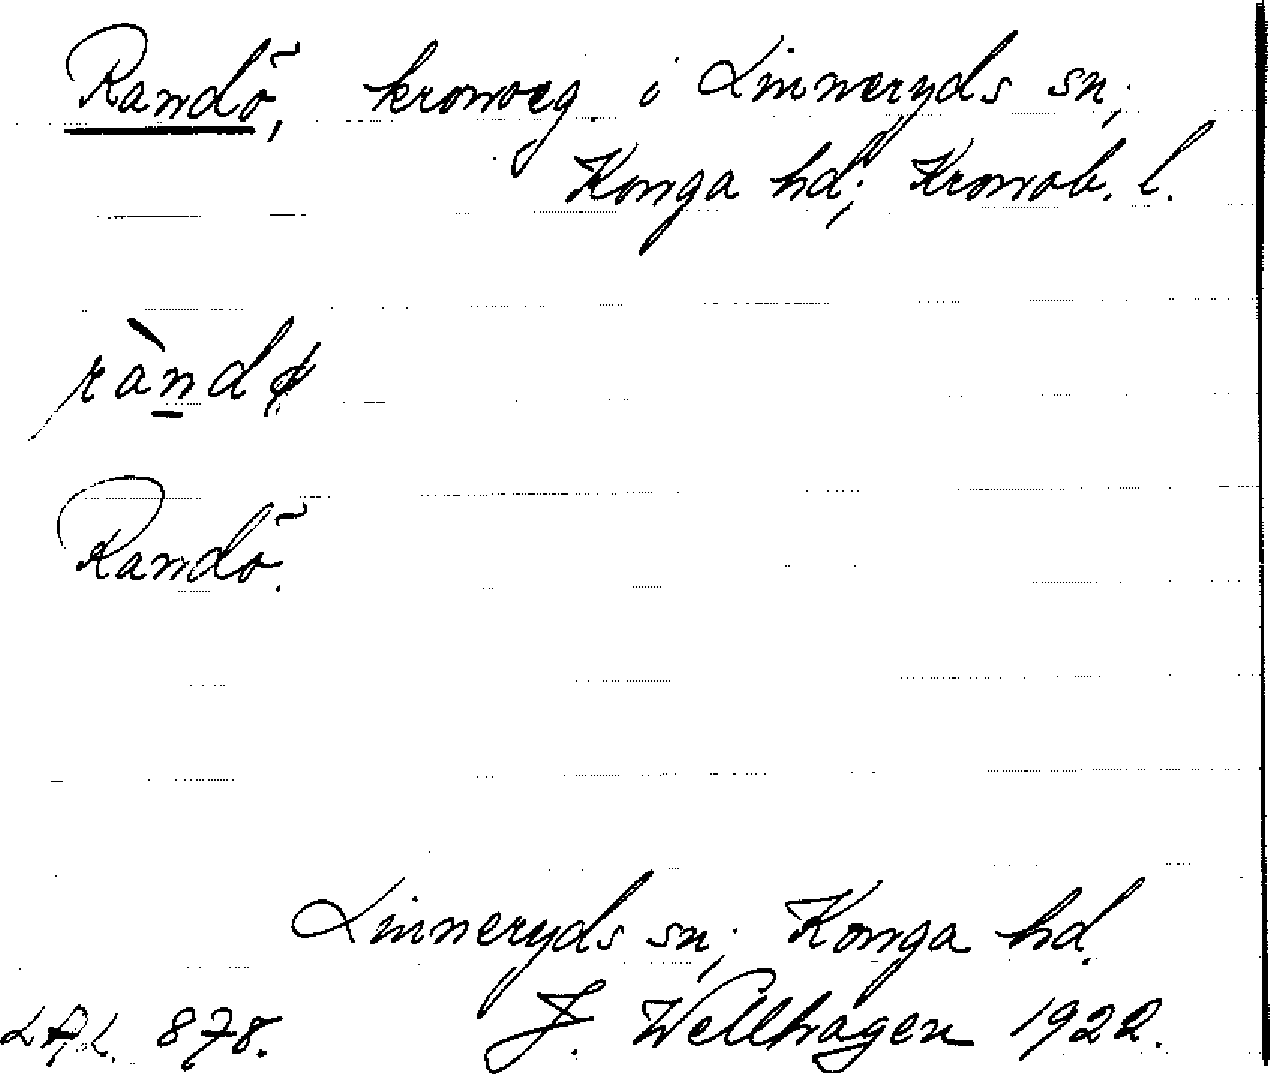 Randö, kronoeg. i Linneryds sn;
Konga hd; Kronob. l.
rànd
Randö.
Linneryds sn; Konga hd.
878. J. Wellhagen 1922.